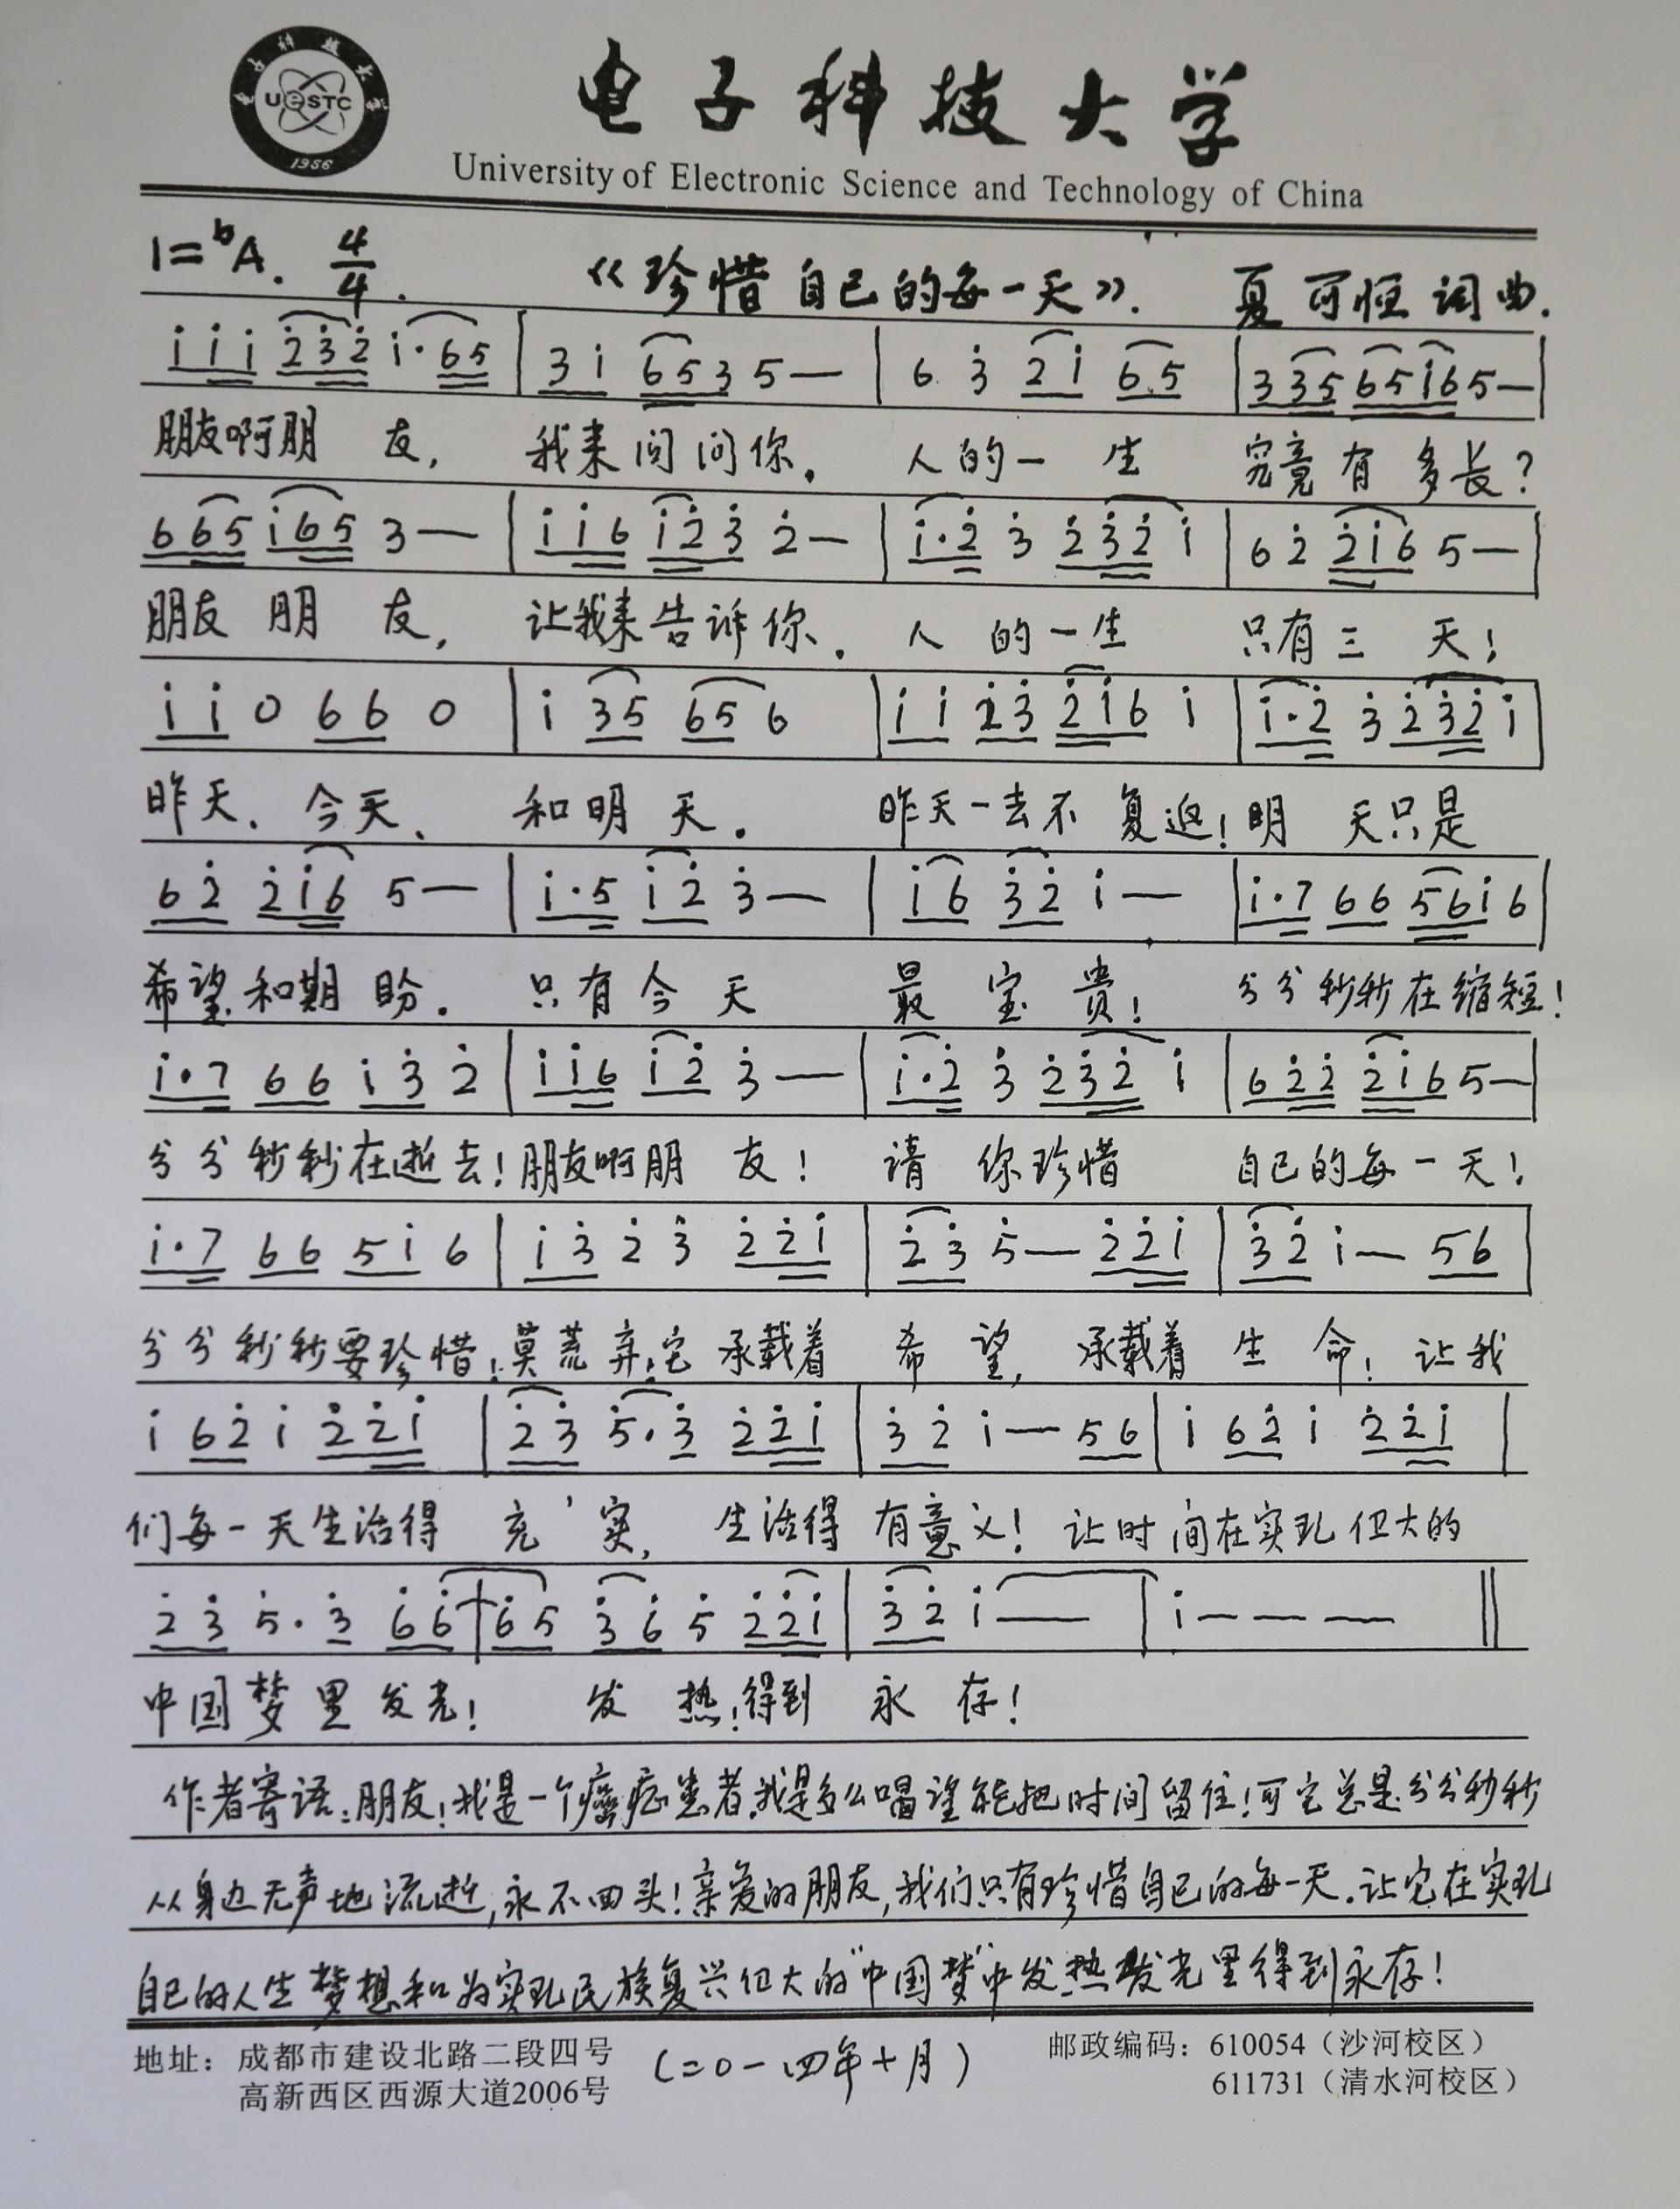 电子科技大学
UESTC
1956
University of Electronic Science and Technology of China
1=ᵇA. 4/4. 《珍惜自己的每一天》. 夏可恒词曲.
i i i 2̇ 3̇ 2̇ i· 6 5 | 3 i 6 5 3 5 — | 6 3̇ 2̇ i 6 5 | 3 3 5 6 5 i 6 5 — |
朋友啊朋 友, 我来问问你。 人的一 生 究竟有 多长?
6 6 5 i 6 5 3 — | i i 6 i 2̇ 3̇ 2̇ — | i· 2̇ 3̇ 2̇ 3̇ 2̇ i | 6 2̇ 2̇ i 6 5 — |
朋友 朋 友, 让我来告诉你。 人 的一生 只有三 天!
i i 0 6 6 0 | i 3 5 6 5 6 | i i 2̇ 3̇ 2̇ i 6 i | i· 2̇ 3̇ 2̇ 3̇ 2̇ i |
昨天、今天、 和明 天。 昨天一去不 复返! 明 天只是
6 2̇ 2̇ i 6 5 — | i· 5 i 2̇ 3̇ — | i 6 3̇ 2̇ i — | i· 7 6 6 5 6 i 6 |
希望和期 盼。 只有今 天 最 宝 贵! 分分秒秒在缩短!
i· 7 6 6 i 3̇ 2̇ | i i 6 i 2̇ 3̇ — | i· 2̇ 3̇ 2̇ 3̇ 2̇ i | 6 2̇ 2̇ 2̇ i 6 5 — |
分分秒秒在逝去! 朋友啊朋 友! 请 你珍惜 自己的每一天!
i· 7 6 6 5 i 6 | i 3̇ 2̇ 3̇ 2̇ 2̇ i | 2̇ 3̇ 5̇ — 2̇ 2̇ i | 3̇ 2̇ i — 5 6 |
分分秒秒要珍惜! 莫荒弃! 它承载着 希 望, 承载着 生 命! 让我
i 6 2̇ i 2̇ 2̇ i | 2̇ 3̇ 5̇· 3̇ 2̇ 2̇ i | 3̇ 2̇ i — 5 6 | i 6 2̇ i 2̇ 2̇ i |
们每一天生活得 充 实, 生活得 有意义! 让时间在实现伟大的
2̇ 3̇ 5̇· 3̇ 6̇ 6̇ | 6̇ 5̇ 3̇ 6̇ 5̇ 2̇ 2̇ i | 3̇ 2̇ i — | i — — — ‖
中国梦里发光! 发 热! 得到 永 存!
作者寄语:朋友!我是一个癌症患者,我是多么唱望能把时间留住!可它总是分分秒秒
从身边无声地流逝,永不回头!亲爱的朋友,我们只有珍惜自己的每一天。让它在实现
自己的人生梦想和为实现民族复兴伟大的"中国梦"中发热发光里得到永存!
地址: 成都市建设北路二段四号 (二0一四年十月) 邮政编码: 610054(沙河校区)
高新西区西源大道2006号 611731(清水河校区)